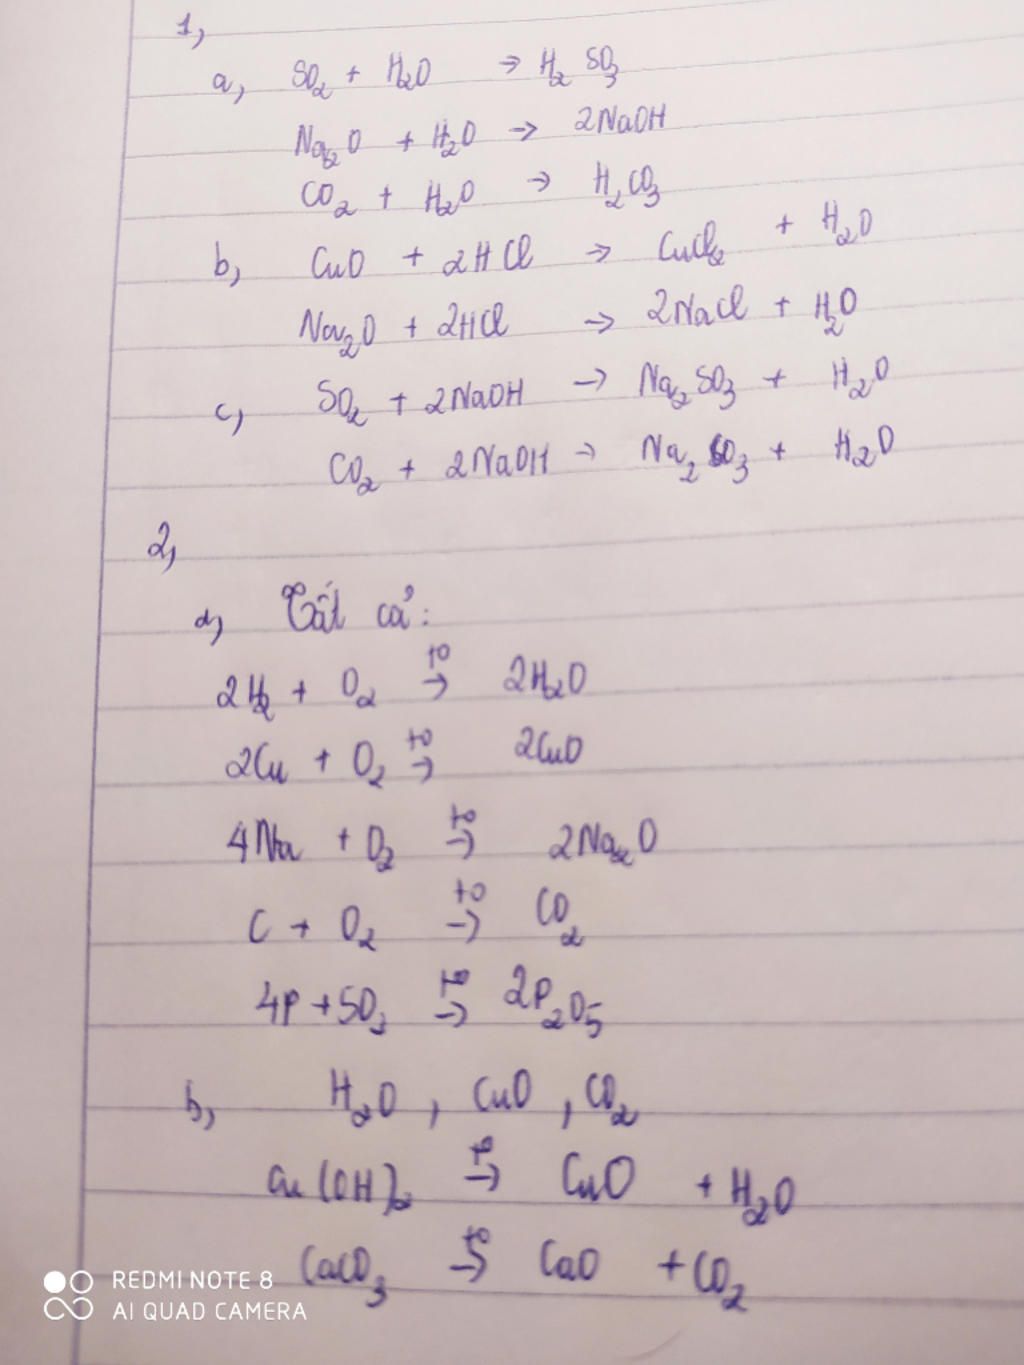 1,
a, SO2 + H2O → H2SO3
Na2O + H2O → 2NaOH
CO2 + H2O → H2CO3
b, CuO + 2HCl → CuCl2 + H2O
Na2O + 2HCl → 2NaCl + H2O
c, SO2 + 2NaOH → Na2SO3 + H2O
CO2 + 2NaOH → Na2CO3 + H2O
2,
a, Tất cả:
2H2 + O2 t0→ 2H2O
2Cu + O2 t0→ 2CuO
4Na + O2 t0→ 2Na2O
C + O2 t0→ CO2
4P + 5O2 t0→ 2P2O5
b, H2O, CuO, CO2
Cu(OH)2 t0→ CuO + H2O
CaCO3 t0→ CaO + CO2
REDMI NOTE 8
AI QUAD CAMERA